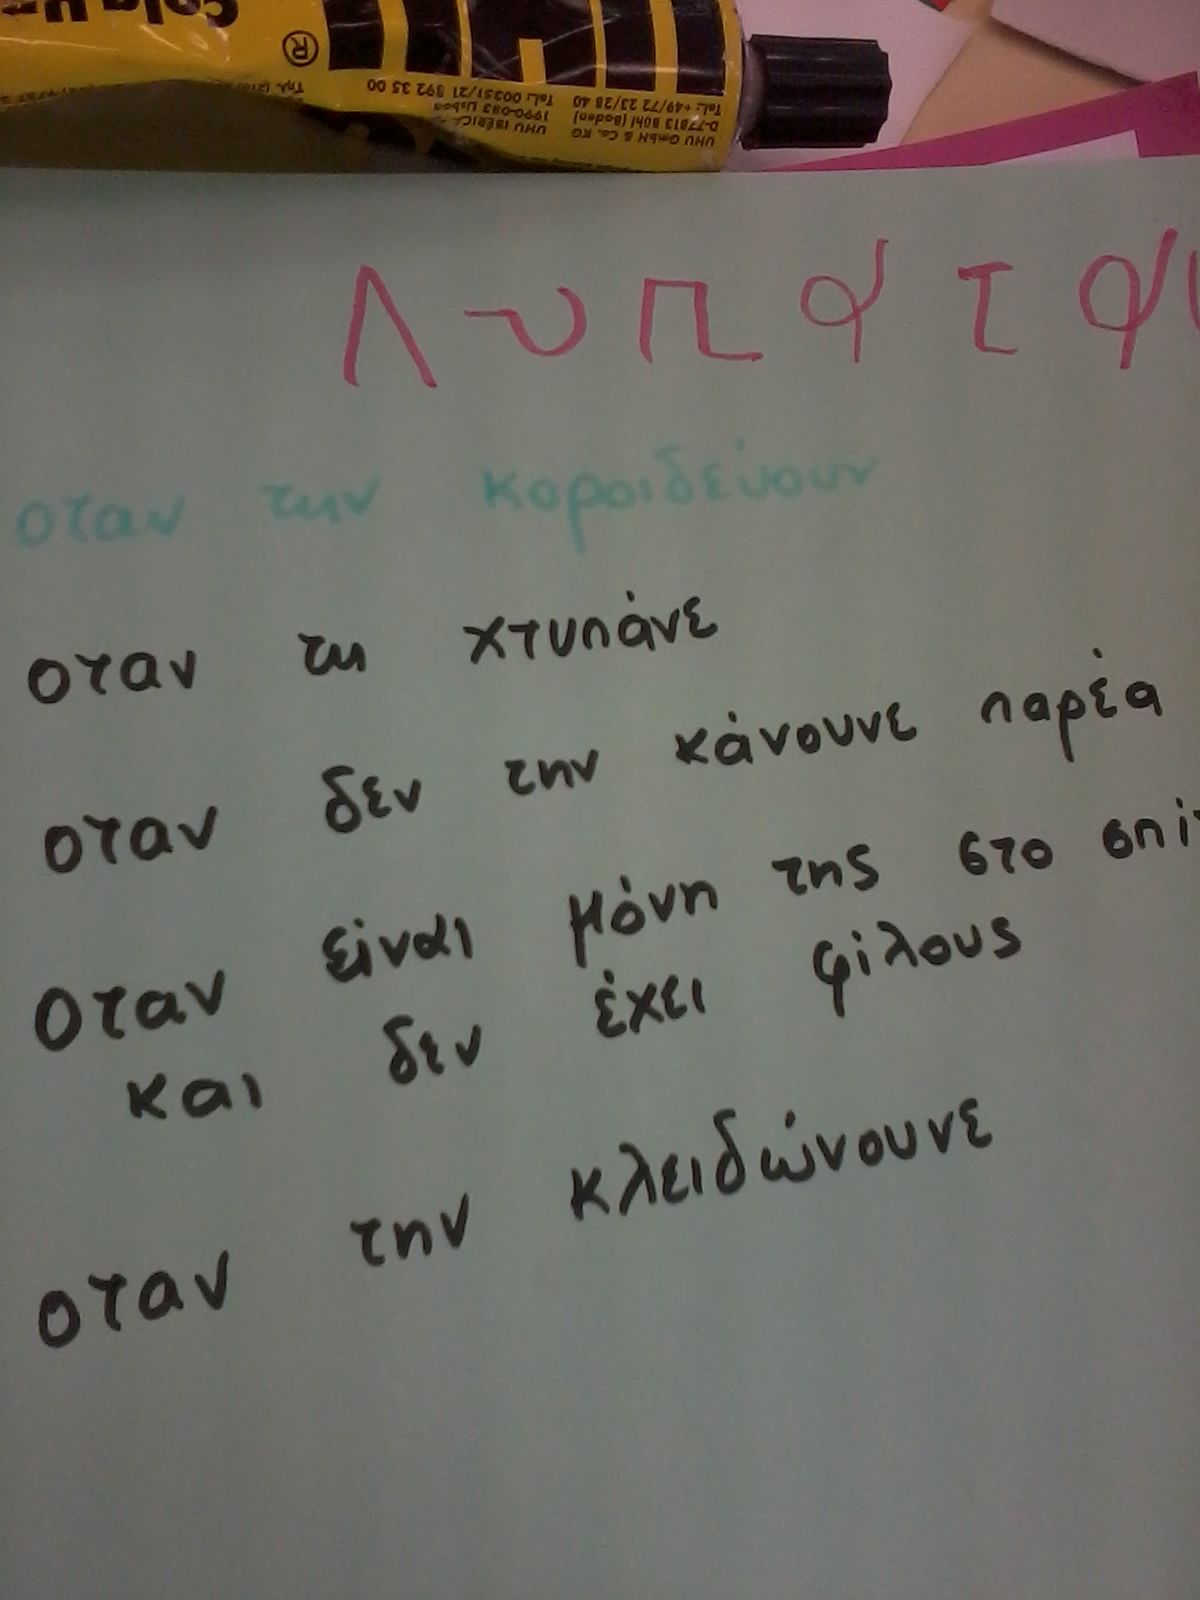 UHU GmbH & Co. KG
D-77813 Bühl (Baden)
Tel.: +49/72 23/28 40
UHU IBÉRICA
1990-083 Lisboa
Tel.: 00351/21 892 35 00
®
λυπάται
οταν την κοροιδεύουν
οταν τη χτυπάνε
οταν δεν την κάνουνε παρέα
οταν είναι μόνη της στο σπί
και δεν έχει φίλους
οταν την κλειδώνουνε